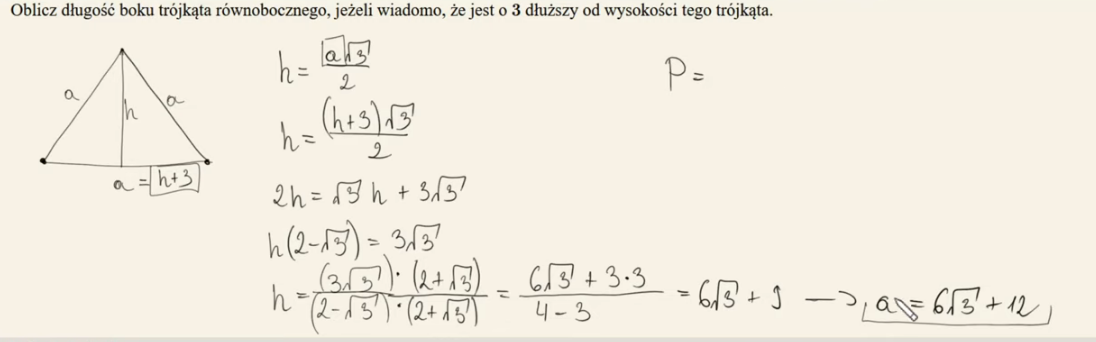 Oblicz długość boku trójkąta równobocznego, jeżeli wiadomo, że jest o 3 dłuższy od wysokości tego trójkąta.
a h a
a = h+3
h = a√3 / 2
P =
h = (h+3)√3 / 2
2h = √3 h + 3√3
h(2-√3) = 3√3
h = (3√3)·(2+√3) / (2-√3)·(2+√3) = 6√3 + 3·3 / 4-3 = 6√3 + 9 → a = 6√3 + 12